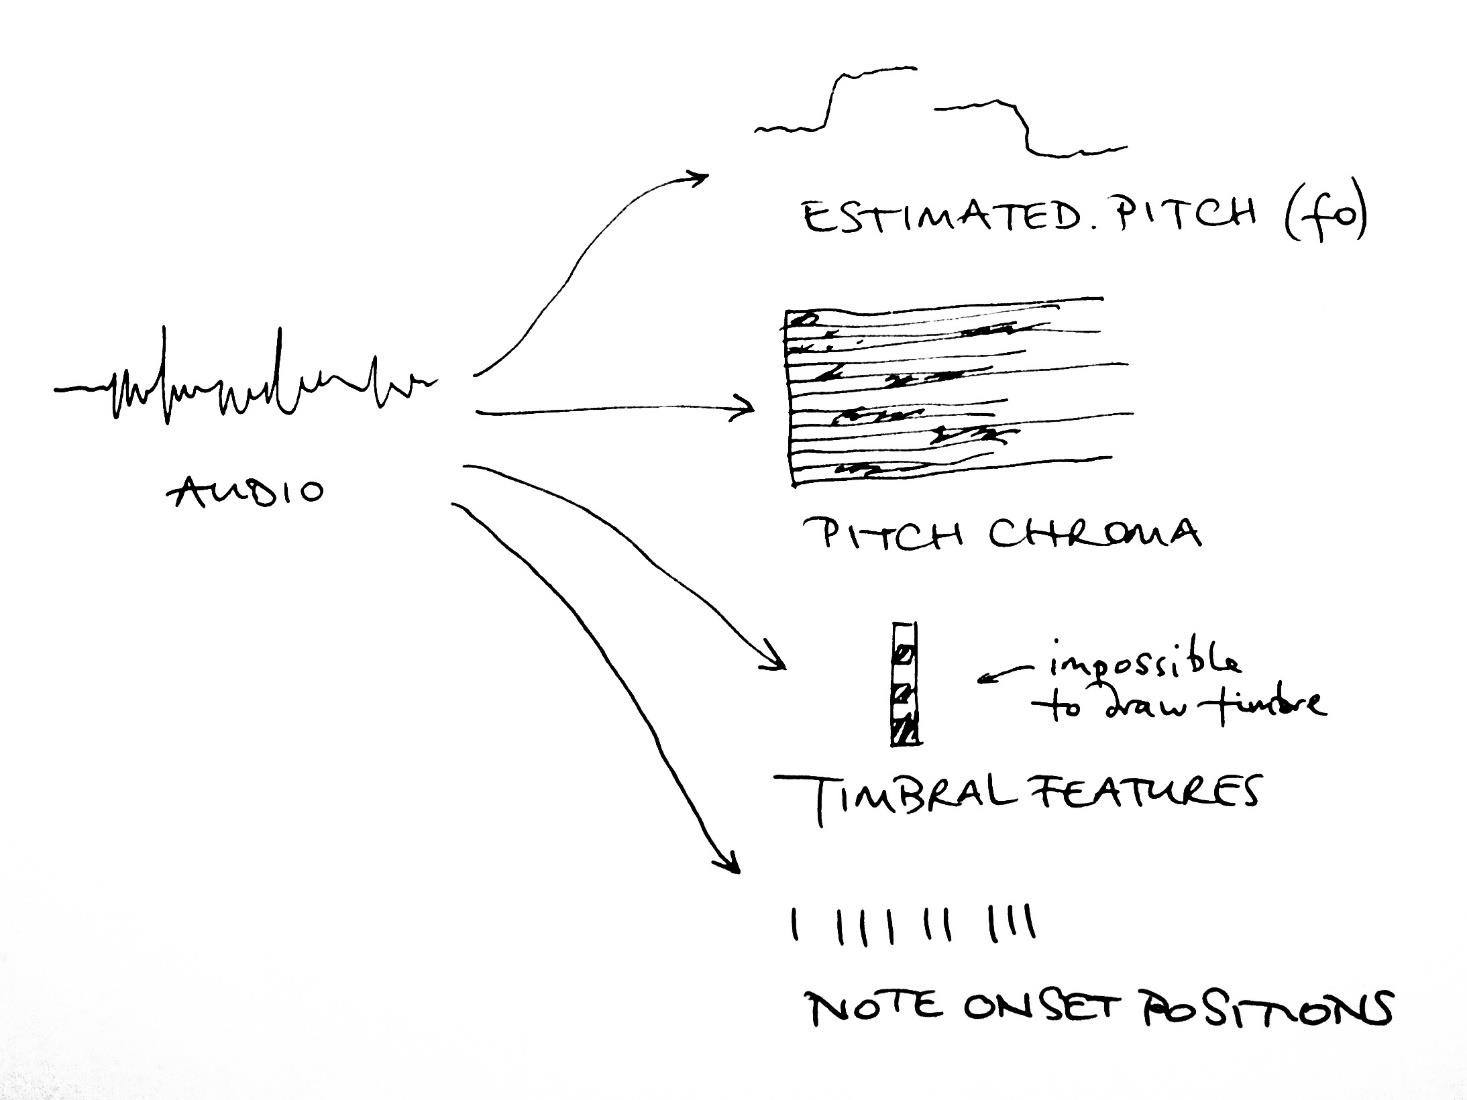 ESTIMATED. PITCH (fo)
AUDIO
PITCH CHROMA
impossible
to draw timbre
TIMBRAL FEATURES
NOTE ONSET POSITIONS